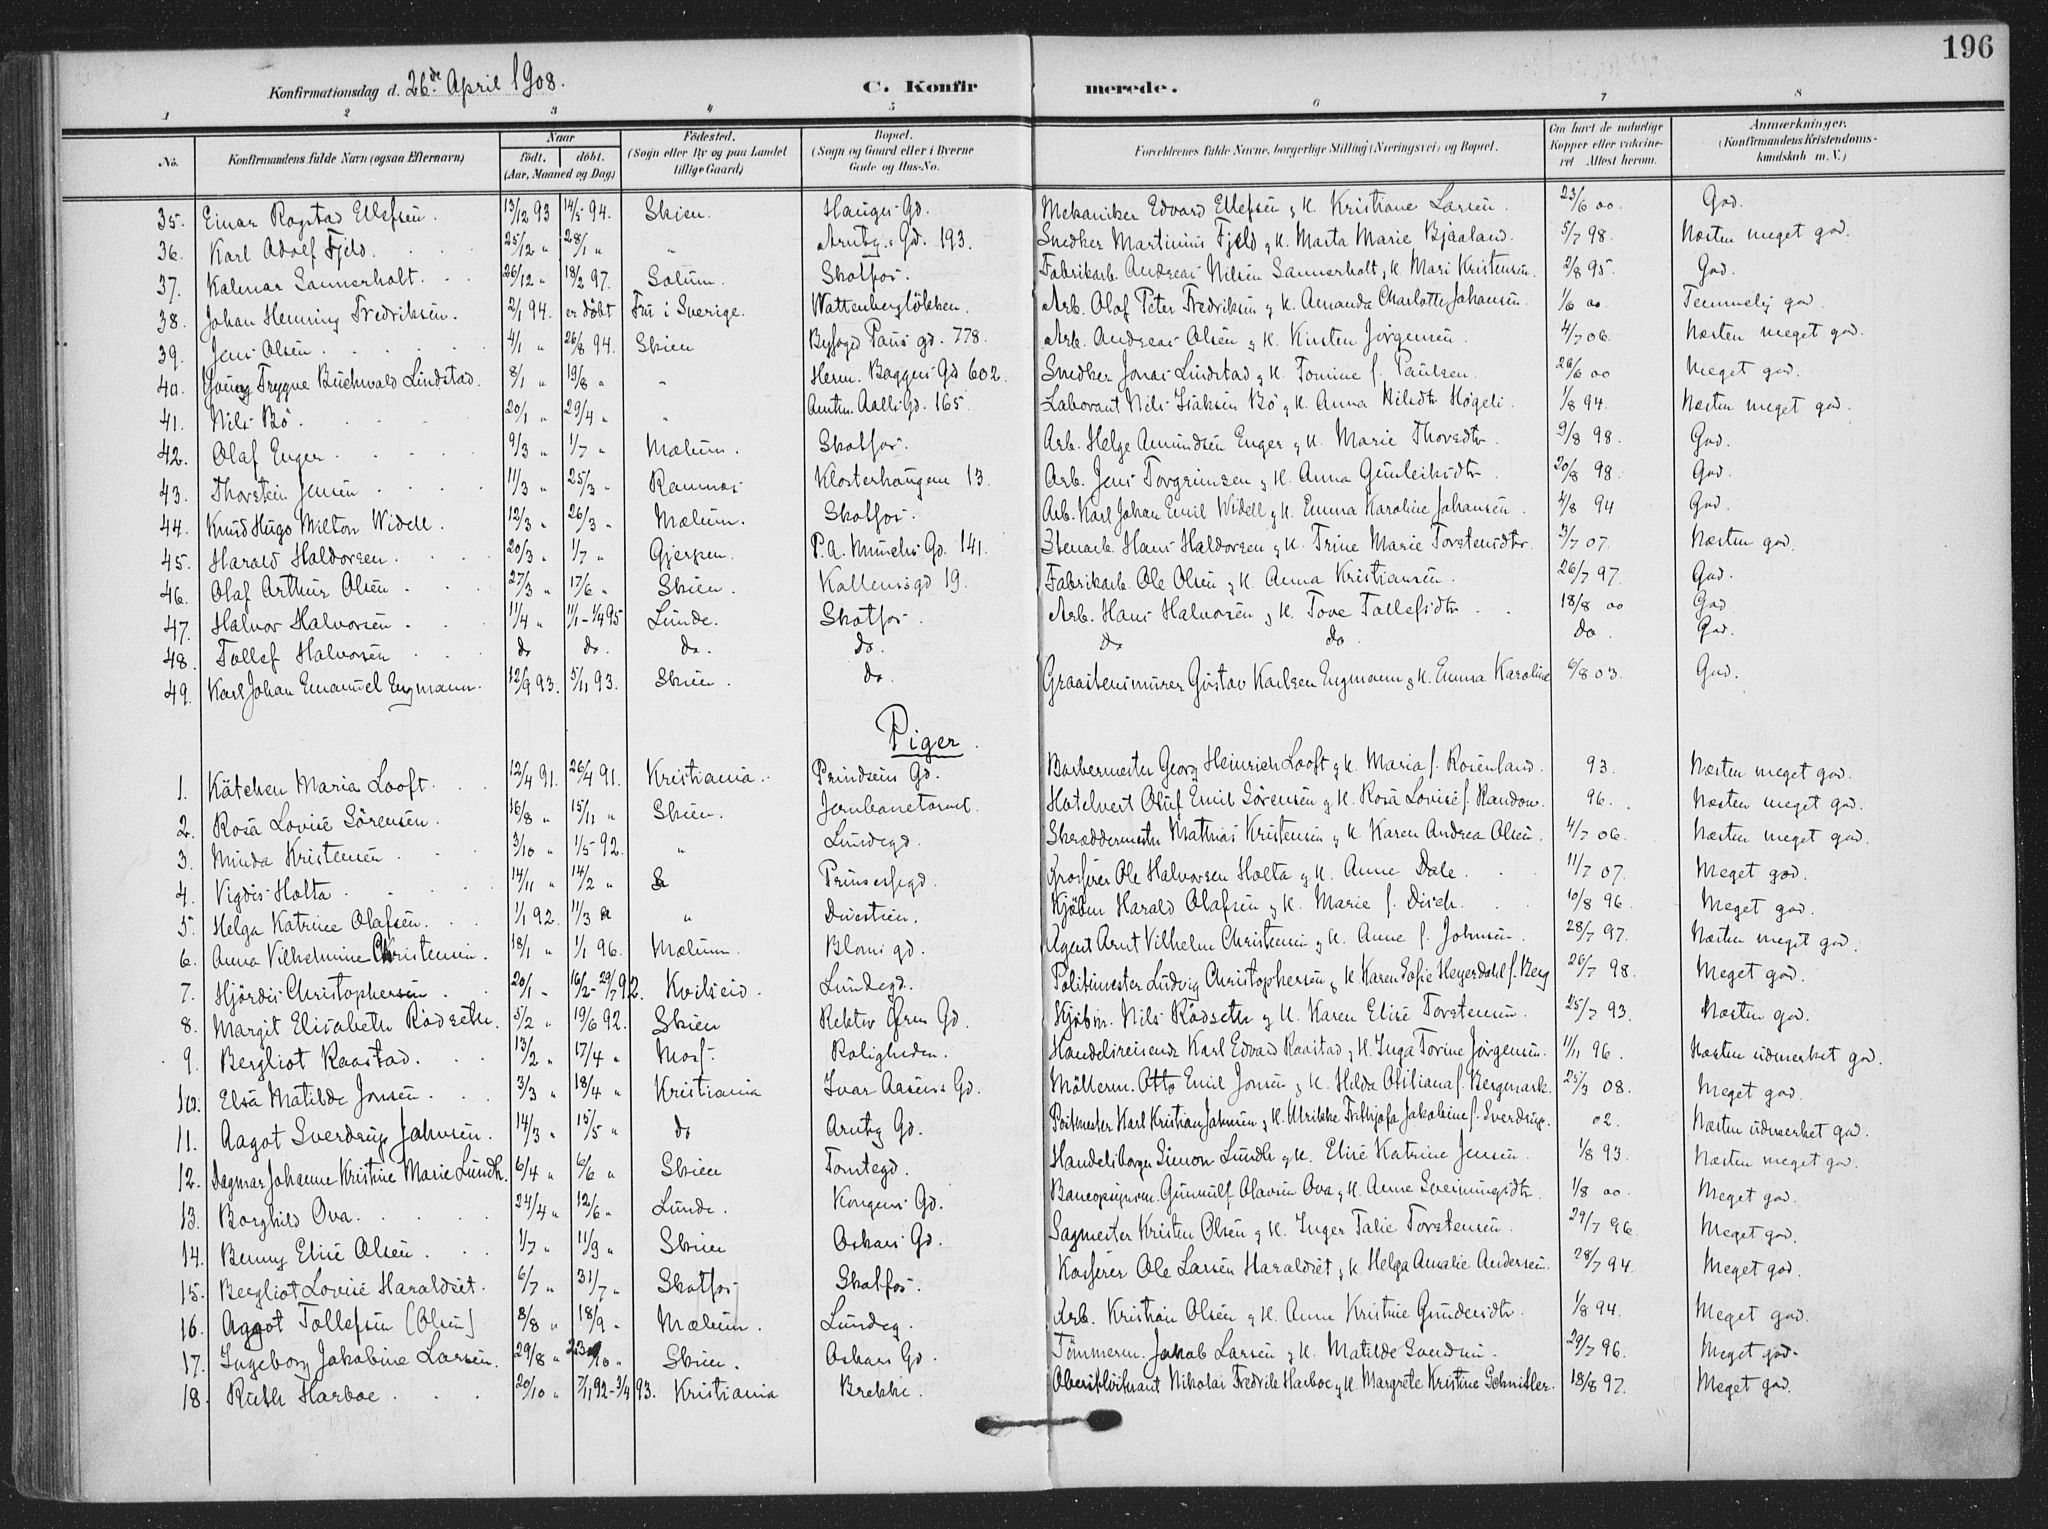 196
Konfirmationsdag d. 26de April 1908. C. Konfirmerede.
1 2 3 4 5 6 7 8
No. Konfirmandens fulde Navn (ogsaa Efternavn) Naar født. døbt. (Aar, Maaned og Dag) Fødested. (Sogn eller By og paa Landet tillige Gaard) Bopæl. (Sogn og Gaard eller i Byerne Gade og Hus-No. Forældrenes fulde Navne, borgerlige Stilling (Næringsvei) og Bopæl. Om havt de naturlige Kopper eller vakcineret Attest herom. Anmærkninger. (Konfirmandens Kristendomskundskab m. V.)
35. Einar Rogstad Ellefsen. 13/12 93 14/5 94. Skien. Hauges Gd. Mekaniker Edvard Ellefsen & H. Kristiane Larsen. 23/6 00 God.
36. Karl Adolf Fjeld. 25/12 " 28/1 " " Arnbg. Gd. 193. Snedker Martinius Fjeld & H. Marta Marie Bjaaland. 5/7 98. Næsten meget god.
37. Kalmar Sannerholt. 26/12 " 18/2 97. Solum. Skotfos. Fabrikarb. Andreas Nilsen Sannerholt & H. Mari Kristensen. 2/8 95. God.
38. Johan Henning Fredriksen. 2/1 94. er døbt Fru i Sverige. Wattenbergløkken. Arb. Olaf Peter Fredriksen & H. Amanda Charlotte Johansen. 1/6 00. Temmelig god.
39. Jens Olsen. 4/1 " 26/8 94. Skien Byfoged Paus gd. 778. Arb. Andreas Olsen & H. Kirsten Jørgensen. 4/7 06. Næsten meget god.
40. Georg Trygve Buchwald Lindstad. 8/1 " 19/8 " " Herm. Bagges Gd 602. Snedker Jonas Lindstad & H. Tomine f. Paulsen. 26/6 00 Meget god.
41. Nils Bö. 20/1 " 29/4 " " Amtm. Aalls Gd. 165. Laborant Nils Isaksen Bö & H. Anna Nilsdtr Høgeli. 1/8 94. Næsten meget god.
42. Olaf Enger. 9/3 " 1/7 " Mælum. Skotfos. Arb. Helge Amundsen Enger & H. Marie Thorsdtr. 9/8 98. God.
43. Thorstein Jensen. 11/3 " 25/3 " Ramnes Klosterhaugene 13. Arb. Jens Torgrimsen & H. Anna Gunleiksdtr 20/8 98. God.
44. Knud Hugo Milton Widell. 12/3 " 26/3 " Mælum. Skotfos. Arb. Karl Johan Emil Widell & H. Emma Karoline Johansen. 4/8 94 God.
45. Harald Haldorsen. 20/3 " 1/7 " Gjerpen. P. A. Munchs Gd. 141. Stenarb. Hans Haldorsen & H. Trine Marie Torstensdtr. 3/7 07. Næsten god.
46. Olaf Arthur Olsen. 27/3 " 17/6 " Skien. Kallensgd 19. Fabrikarb. Ole Olsen & H. Anna Kristiansen. 26/7 97. God.
47. Halvor Halvorsen. 11/4 " 11/1 - 1/4 95 Lunde. Skotfos. Arb. Hans Halvorsen & H. Tove Tollefsdtr. 18/8 00 God
48. Tollef Halvorsen do do. do. do. do do. do. God.
49. Karl Johan Emanuel Engmann. 12/9 93. 5/11 93. Skien. do Graastensmurer Gustav Karlsen Engmann & H. Emma Karoline 6/8 03. God.
Piger.
1. Kätchen Maria Looft. 12/4 91. 26/4 91. Kristiania. Prindsens Gd. Barbermester Georg Heinrich Looft & H. Maria f. Rosenland. 93. Næsten meget god.
2. Rosa Lovise Sörensen. 16/8 " 15/11 " Skien. Jernbanetorvet. Hotelvert Oluf Emil Sörensen & H. Rosa Lovise f. Randow. 96. Næsten meget god.
3. Minda Kristensen. 3/10 " 1/5 92. " Lundegd. Skræddermester Mathias Kristensen & H. Karen Andrea Olsen. 4/7 06. Næsten meget god.
4. Vigdis Holta. 14/11 " 14/2 " Prinsessegd. Grosserer Ole Halvorsen Holta & H. Anne Dale. 11/7 07. Meget god.
5. Helga Katrine Olafsen. 1/1 92. 11/3 " " Duestien. Kjöbm Harald Olafsen & H. Marie f. Disch. 10/8 96. Meget god.
6. Anna Vilhelmine Christensen. 18/1 " 1/1 96. Mælum. Bloms gd. Agent Arnt Vilhelm Christensen & H. Anne f. Johnsen. 28/7 97. Næsten meget god.
7. Hjördis Christophersen. 20/1 " 16/2 - 29/7 92. Kviteseid. Lundegd. Politimester Ludvig Christophersen & H. Karen Sofie Heyerdahl f. Berg 26/7 98. Meget god.
8. Margit Elisabeth Rödseth. 5/2 " 19/6 92. Skien Rektor Ørns Gd. Kjöbm. Nils Rödseth & H. Karen Elise Torstensen. 25/7 93. Næsten god.
9. Bergliot Raastad. 13/2 " 17/4 " Moss. Roligheden. Handelsreisende Karl Edvard Raastad & H. Inga Torine Jörgensen. 11/11 96. Næsten udmerket god.
10. Elsa Matilde Jonsen. 3/3 " 18/4 " Kristiania Ivar Aasens Gd. Möllerm. Otto Emil Jonsen & H. Hilda Otiliana f. Bergmark. 25/3 08. Meget god.
11. Aagot Sverdrup Jahnsen. 14/3 " 15/5 " do Arnbg Gd. Postmester Karl Kristian Jahnsen & H. Ulrikke Frithjofa Jakobine f. Sverdrup. 02. Næsten udmerket god.
12. Dagmar Johanne Kristine Marie Lundh. 6/4 " 6/6 " Skien Tomtegd. Handelsborger Simon Lundh & H. Elise Katrine Jensen. 1/8 93. Næsten meget god.
13. Borghild Ova. 24/4 " 12/6 " Lunde. Kongens Gd. Baneopsynsm. Gunnulf Olavsen Ova & H. Anne Sveinungsdtr. 1/8 00. Meget god.
14. Benny Elise Olsen. 1/7 " 11/9 " Skien Oskars Gd. Sagmester Kristen Olsen & H. Inger Talie Torstensen. 29/7 96. Meget god.
15. Bergliot Lovise Haraldset. 6/7 " 31/7 " Skotfos Skotfos. Kasserer Ole Larsen Haraldset & H. Helga Amalie Andersen. 28/7 94. Meget god.
16. Aagot Tollefsen (Olsen) 8/8 " 18/9 " Mælum. Lundeg. Arb. Kristian Olsen & H. Anne Kristine Gundersdtr. 1/8 94. Meget god.
17. Ingeborg Jakobine Larsen. 29/8 " 23/10 " Skien. Oskars Gd. Tömmerm. Jakob Larsen & H. Matilde Sandnes. 29/7 96. Meget god.
18. Ruth Harboe. 20/10 " 7/11 92 - 3/4 93. Kristiania Brekke. Oberstlöitnant Nikolai Fredrik Harboe & H. Margrete Kristine Schnitler. 18/8 97. Meget god.